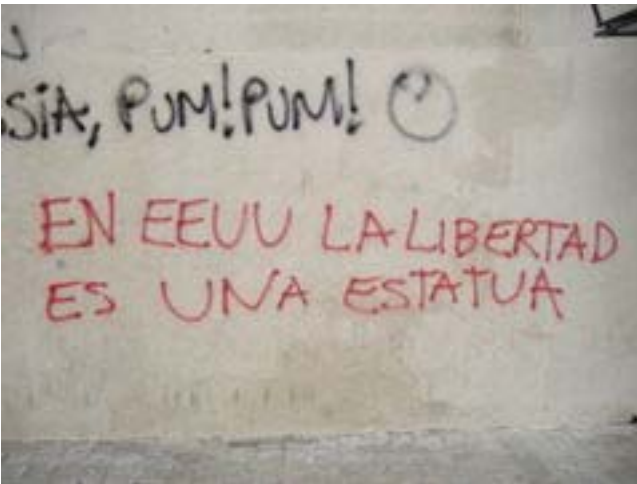 SÍA, PUM! PUM!
EN EEUU LA LIBERTAD
ES UNA ESTATUA